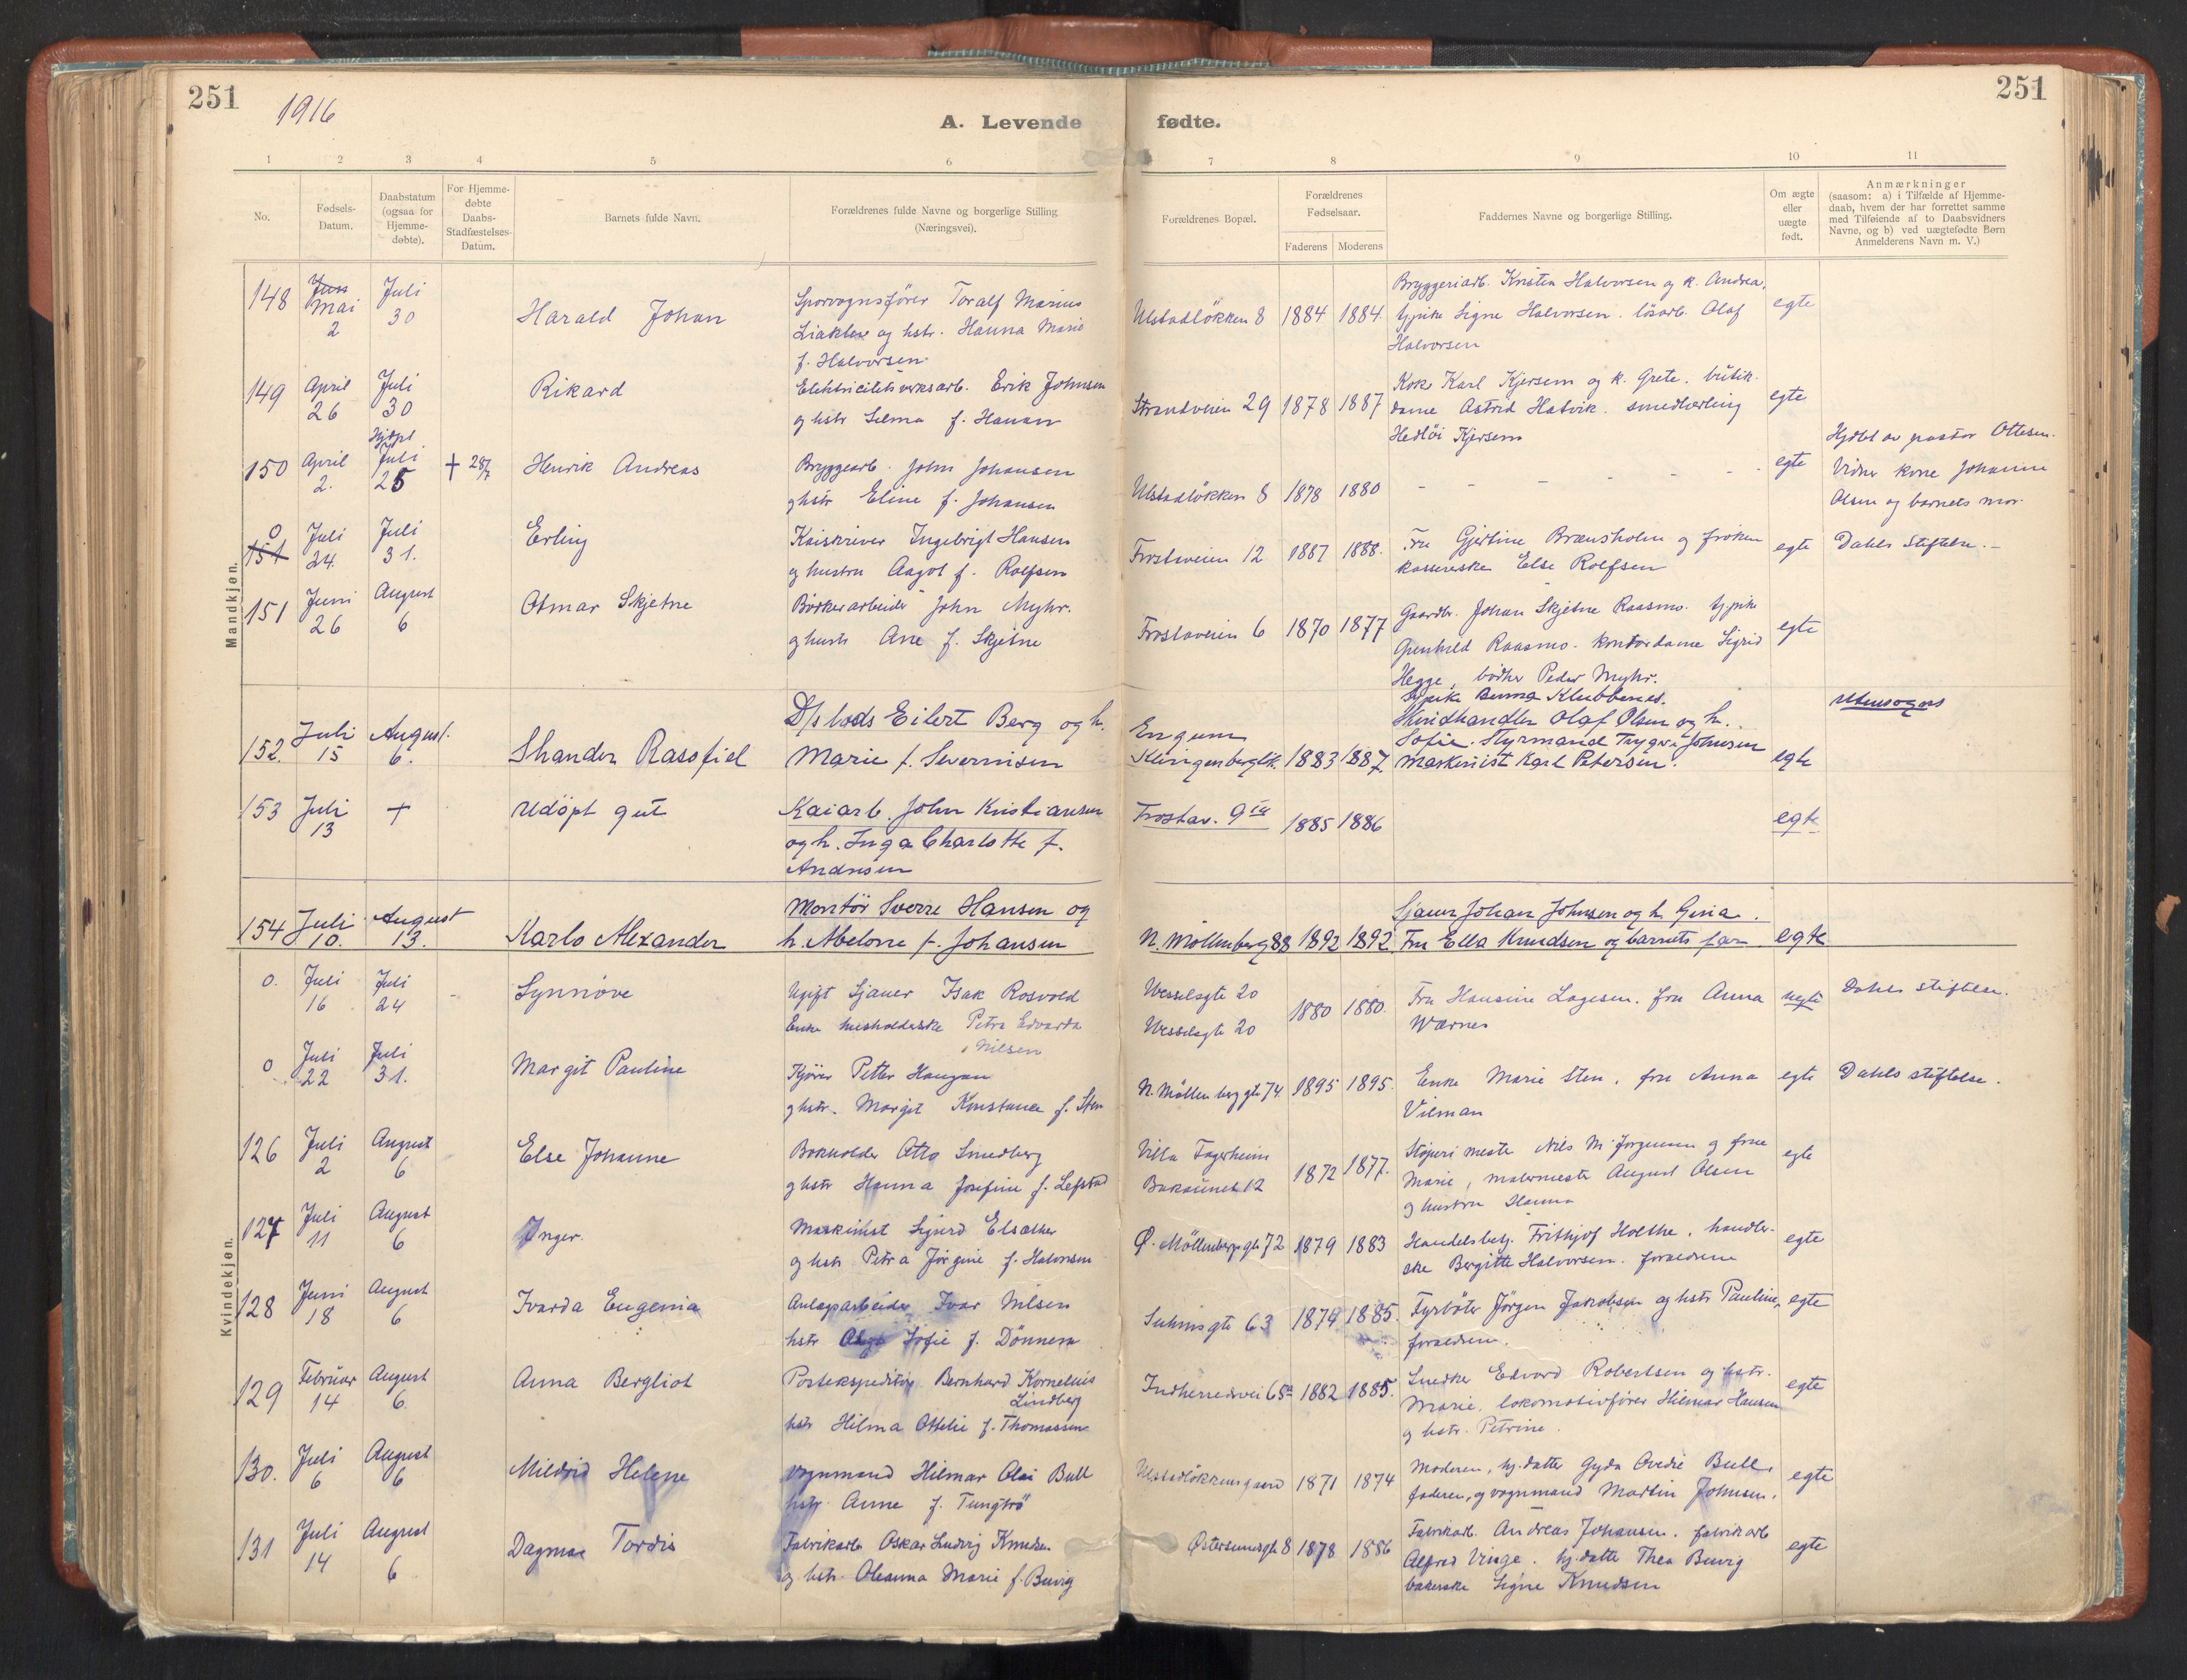 251
1916
A. Levende
fødte.
251
1 2 3 4 5 6 7 8 9 10 11
No.
Fødsels-Datum.
Daabstatum (ogsaa for Hjemme-døbte).
For Hjemme-døbte Daabs-Stadfæstelses-Datum.
Barnets fulde Navn.
Forældrenes fulde Navne og borgerlige Stilling
(Næringsvei).
Forældrenes Bopæl.
Forældrenes Fødselsaar.
Faderens Moderens
Faddernes Navne og borgerlige Stilling.
Om ægte eller uægte født.
Anmærkninger
(saasom: a) i Tilfælde af Hjemme-
daab, hvem der har forrettet samme
med Tilføiende af to Daabsvidners
Navne, og b) ved uægtefødte Børn
Anmelderens Navn m. V.)
Mandkjøn.
148 Mai 2 Juli 30 Harald Johan
Sporvognsfører Toralf Marius
og hstr. Hanna Marie
f. Halvorsen
Ulstadløkken 8 1884 1884.
Bryggeriarb. Kristen Halvorsen og k. Andrea,
tjpike Signe Halvorsen. løsarb. Olaf
Halvorsen
egte
149 April 26 Juli 30 Rikard
Elektricitetsverksarb. Erik Johnsen
og hstr Selma f. Hanan
Strandveien 29 1878 1887
Kok Karl Kjersem og k. Grete. butik-
dame Astrid Hatvik. smedlærling
Kjersem
egte
150 April 2. Hjdøpt Juli 25 + 28/7 Henrik Andreas
Bryggearb. John Johansen
og hstr Eline f. Johansen
Ulstadløkken 8 1878 1880
- - - - - -
egte
Hjdbt av pastor Ottesen.
Vidner kone Johanne
Olsen og barnets mor.
0 151 Juli 24. Juli 31. Erling
Kaiskriver Ingebrigt Hansen
og hustru Aagot f. Rolfsen
Frostaveien 12 1887 1888.
Fru Gjertine Brænsholm og frøken
kassererske Else Rolfsen
egte
Dahls Stiftelse. -
151 Juni 26 August 6 Otmar Skjetne
Børkerarbeider John Myhr.
og hustr Ane f. Skjetne
Frostaveien 6 1870 1877
Gaardbr. Johan Skjetne Raasmo. tjpike
Gunhild Raasmo. kontordame Sigrid
Hegge, bødker Peder Myhr.
egte
152. Juli 15 August. 6.
D/s lods Eilert Berg og h.
Marie f. Severinsen
Engum
Klingenberg 1883 1887.
tjpike Klubbenes.
Olaf Olsen og h.
Sofie. Styrmand Trygve Johnsen
Maskinist Karl Petersen.
egte
utensogns
153 Juli 13 + Udöpt gut
Kaiarb. John Kristiansen
og h. Inga Charlotte f.
Andresen
Frostav. 9 1885 1886
egte
154 Juli 10. August 13. Karlo Alexander
Montör Sverre Hansen og
h. Abelone f. Johansen
N. Möllenberg 88 1892 1892
Sjauer Johan Johnsen og h. Gina.
Fru Ella Knudsen og barnets far
egte
Kvindekjøn.
0. Juli 16 Juli 24 - Synnöve
Ugift Sjauer Isak Rosvold
Enke husholderske Petra Edvarda
Nilsen
Wesselsgte 20
Wesselsgte 20
1880 1880.
Fru Hansine Lagesen. fru Anna
Wærnes
uegte
Dahls stiftelse.
0 Juli 22 Juli 31. Margit Pauline
Kjører Petter Haugan
og hstr. Margit Konstance f. Sten
N. Möllenberggte 74. 1895 1895.
Enke Marie Sten. fru Anna
Vilman
egte
Dahls stiftelse.
126 Juli 2 August 6 Else Johanne
Bokholder Otto Smedberg
og hstr Hanna Josefine f. Lefstad
Villa Fagerheim
Bakaunet 12
1872 1877.
Støperimester Nils M Jørgensen og frue
Marie, malermester August Olsen
og hustru Hanna
egte
127 Juli 11 August 6 Inger.
Maskinist Sigurd Elsæther
og hstr Petra Jørgine f. Halvorsen
Ø. Möllenberggt 72 1879 1883
Handelsbetj. Frithjof Holthe. handler-
ske Bergitte Halvorsen. forældrene
egte
128 Juni 18 August 6 Ivarda Eugenia
Anlægsarbeider Ivar Nilsen
hstr Olga Sofie f. Dönnem
Suhmsgte 63 1874 1885.
Fyrbøter Jörgen Jakobsen og hstr Pauline,
forældrene.
egte
129 Februar 14 August 6. Anna Bergliot
Postekspeditör Bernhard Kornelius
Lindberg
hstr Hilma Ottelie f. Thomassen
Indherredsvei 65a 1882 1885.
Snedker Edvard Robertsen og hstr.
Marie. lokomotivfører Hilmar Hansen
og hstr. Petrine.
egte
130. Juli 6 August 6 Mildrid Helene
vognmand Hilmar Olai Bull
hstr Anne f. Tungtrö
Ulstadløkkengaard 1871 1874
Moderen, hj.datter Gyda Ovedie Bull,
faderen, og vognmand Martin Johnsen.
egte
131 Juli 14 August 6 Dagmar Tordis
Fabrikarb Oskar Ludvig Knudsen
og hstr. Oleanna Marie f. Buvig
Østersundsgt 8 1878 1886
Fabrikarb. Andreas Johansen. fabrikarb
Alfred Vinge. hj.datter Thea Buvig
bakerske Signe Knudsen
egte